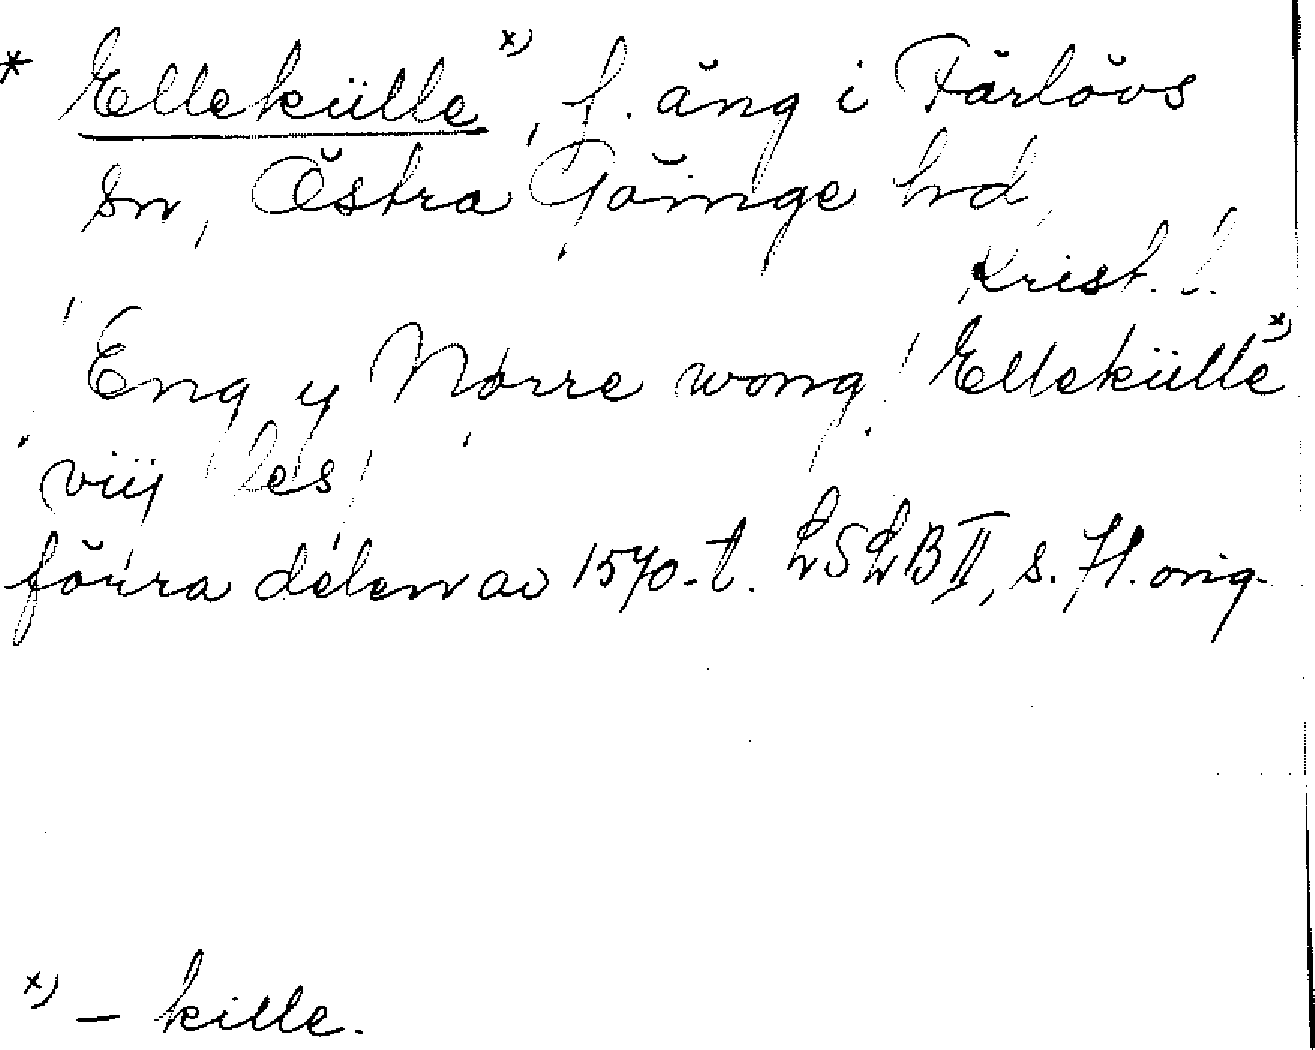 * Elleküllex), f. äng i Färlövs
sn, Östra Göinge hd,
Krist. l.
Eng y Norre wong / Elleküllex)
viij les /
förra delen av 1570-t. LSLB II, s. 71. orig.
x) – kille.